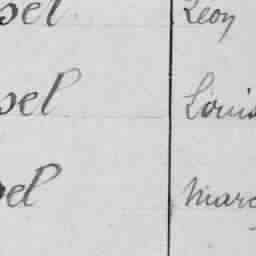 sel Léon
sel Louis
sel Marc